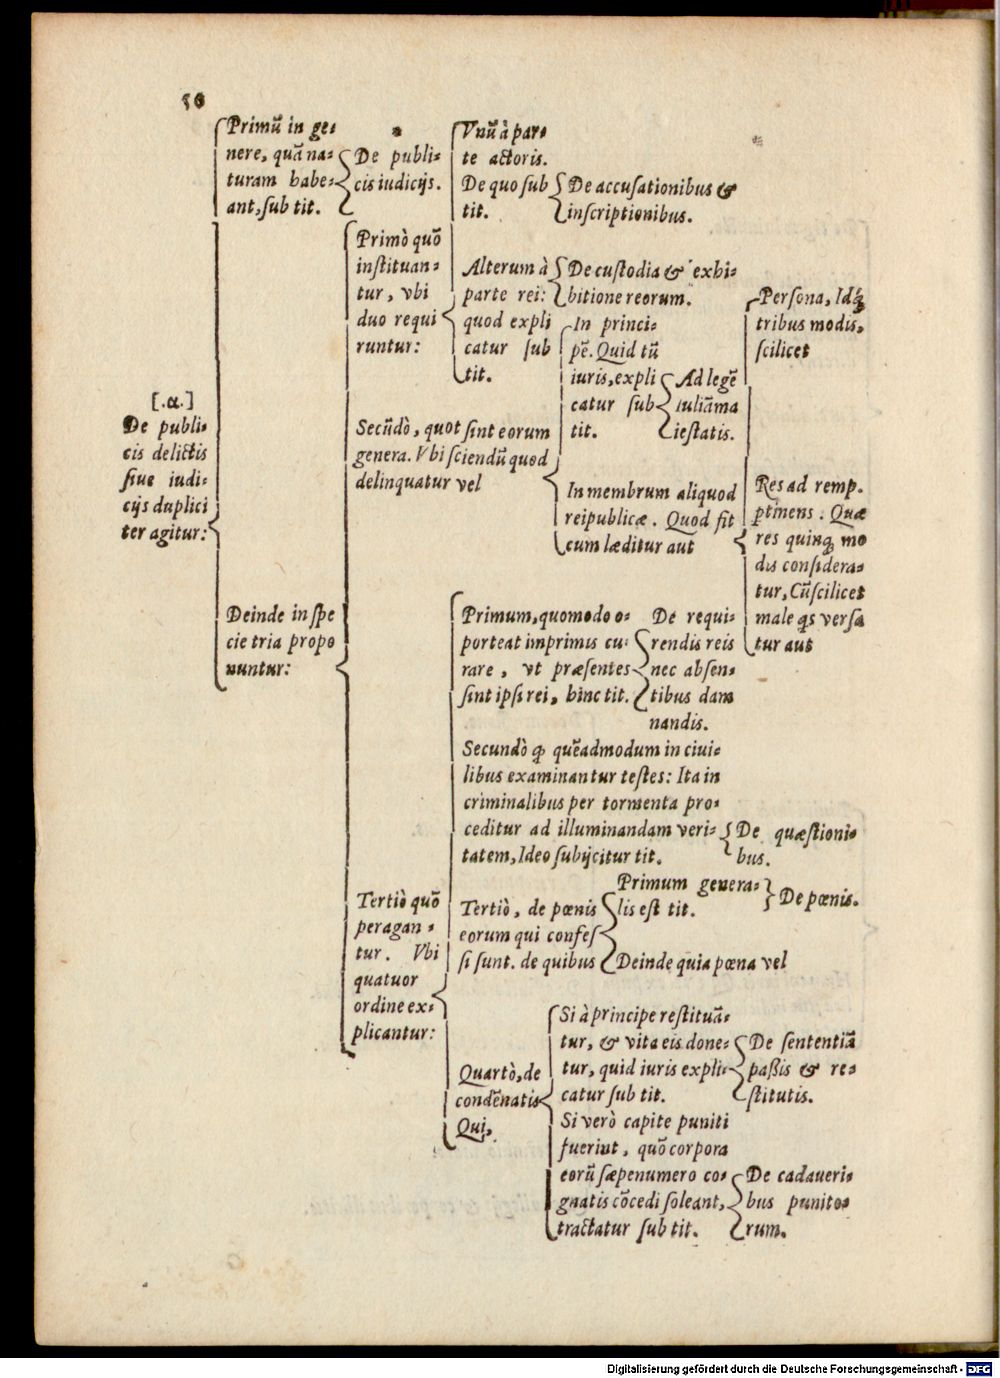 50
[.α.]
De publi-
cis delictis
siue iudi-
cijs duplici
ter agitur:
Primũ in ge-
nere, quã na-
turam habe-
ant, sub tit.
De publi-
cis iudicijs.
Deinde in spe
cie tria propo
nuntur:
Primò quõ
instituan-
tur, vbi
duo requi
runtur:
Vnũ à par-
te actoris.
De quo sub
tit.
De accusationibus &
inscriptionibus.
Alterum à
parte rei:
quod expli
catur sub
tit.
De custodia & exhi-
bitione reorum.
Secũdò, quot sint eorum
genera. Vbi sciendũ quod
delinquatur vel
In princi-
pẽ. Quid tũ
iuris, expli
catur sub
tit.
Ad legẽ
iuliãma
iestatis.
In membrum aliquod
reipublicæ. Quod fit
cum læditur aut
Persona, Idq́;
tribus modis,
scilicet
Res ad remp.
ꝑtinens. Quæ
res quinq; mo
dis considera-
tur, Cũscilicet
male qs versa
tur aut
Tertiò quõ
peragan-
tur. Vbi
quatuor
ordine ex-
plicantur:
Primum, quomodo o-
porteat imprimis cu-
rare, vt præsentes
sint ipsi rei, hinc tit.
De requi-
rendis reis
nec absen-
tibus dam
nandis.
Secundò ꝙ quẽadmodum in ciui-
libus examinantur testes: Ita in
criminalibus per tormenta pro-
ceditur ad illuminandam veri-
tatem, Ideo subijcitur tit.
De quæstioni-
bus.
Tertiò, de pœnis
eorum qui confes
si sunt. de quibus
Primum genera-
lis est tit.
De pœnis.
Deinde quia pœna vel
Quartò, de
condẽnatis
Qui,
Si à principe restituã-
tur, & vita eis done-
tur, quid iuris expli-
catur sub tit.
De sententiã
paßis & re-
stitutis.
Si verò capite puniti
fuerint, quõ corpora
eorũ sæpenumero co-
gnatis cõcedi soleant,
tractatur sub tit.
De cadaueri-
bus punito-
rum.
Digitalisierung gefördert durch die Deutsche Forschungsgemeinschaft - DFG